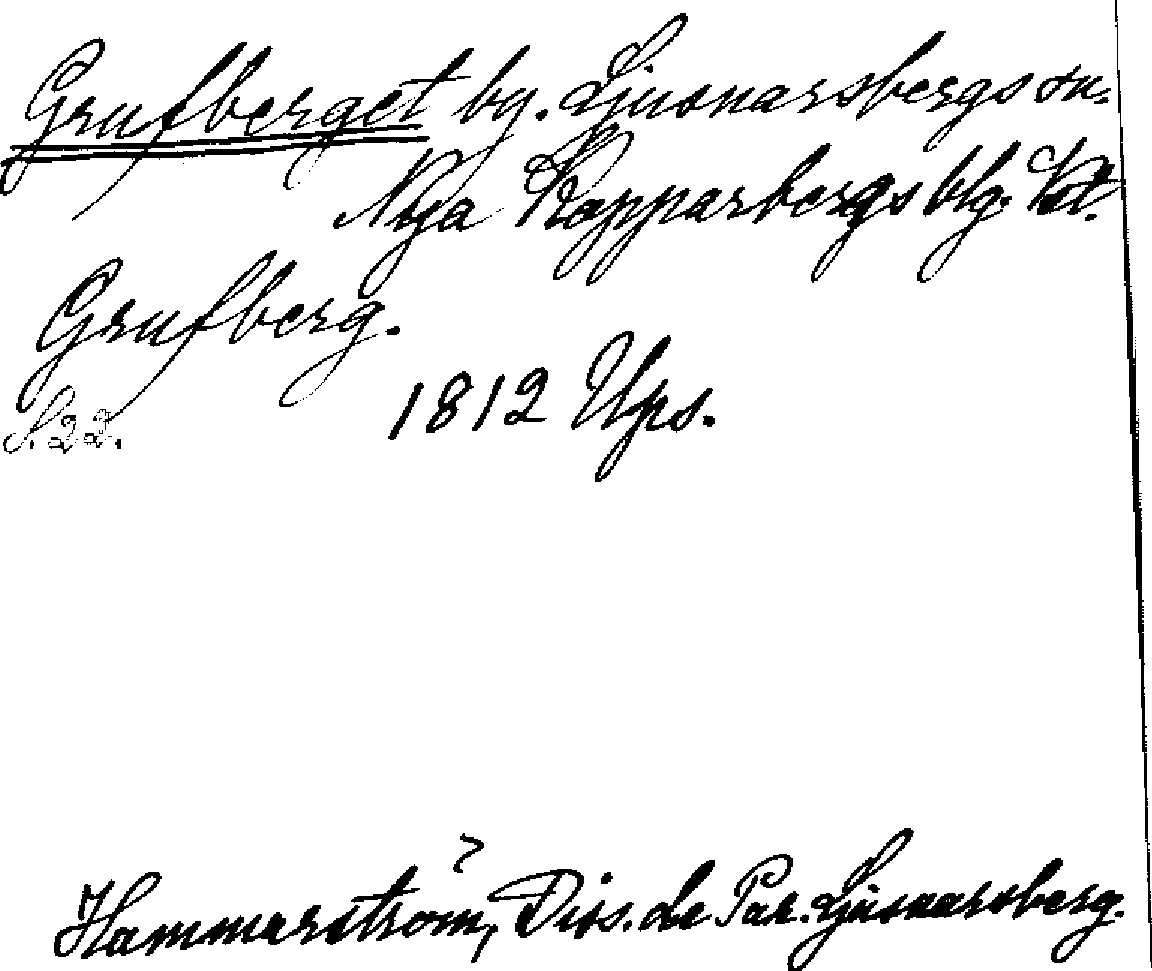 Grufberget by. Ljusnarsbergs sn.
Nya Kopparbergs blg. Vstm.
Grufberg.
S. 22. 1812 Ups.
Hammarström, Diss. de Par. Ljusnarsberg.